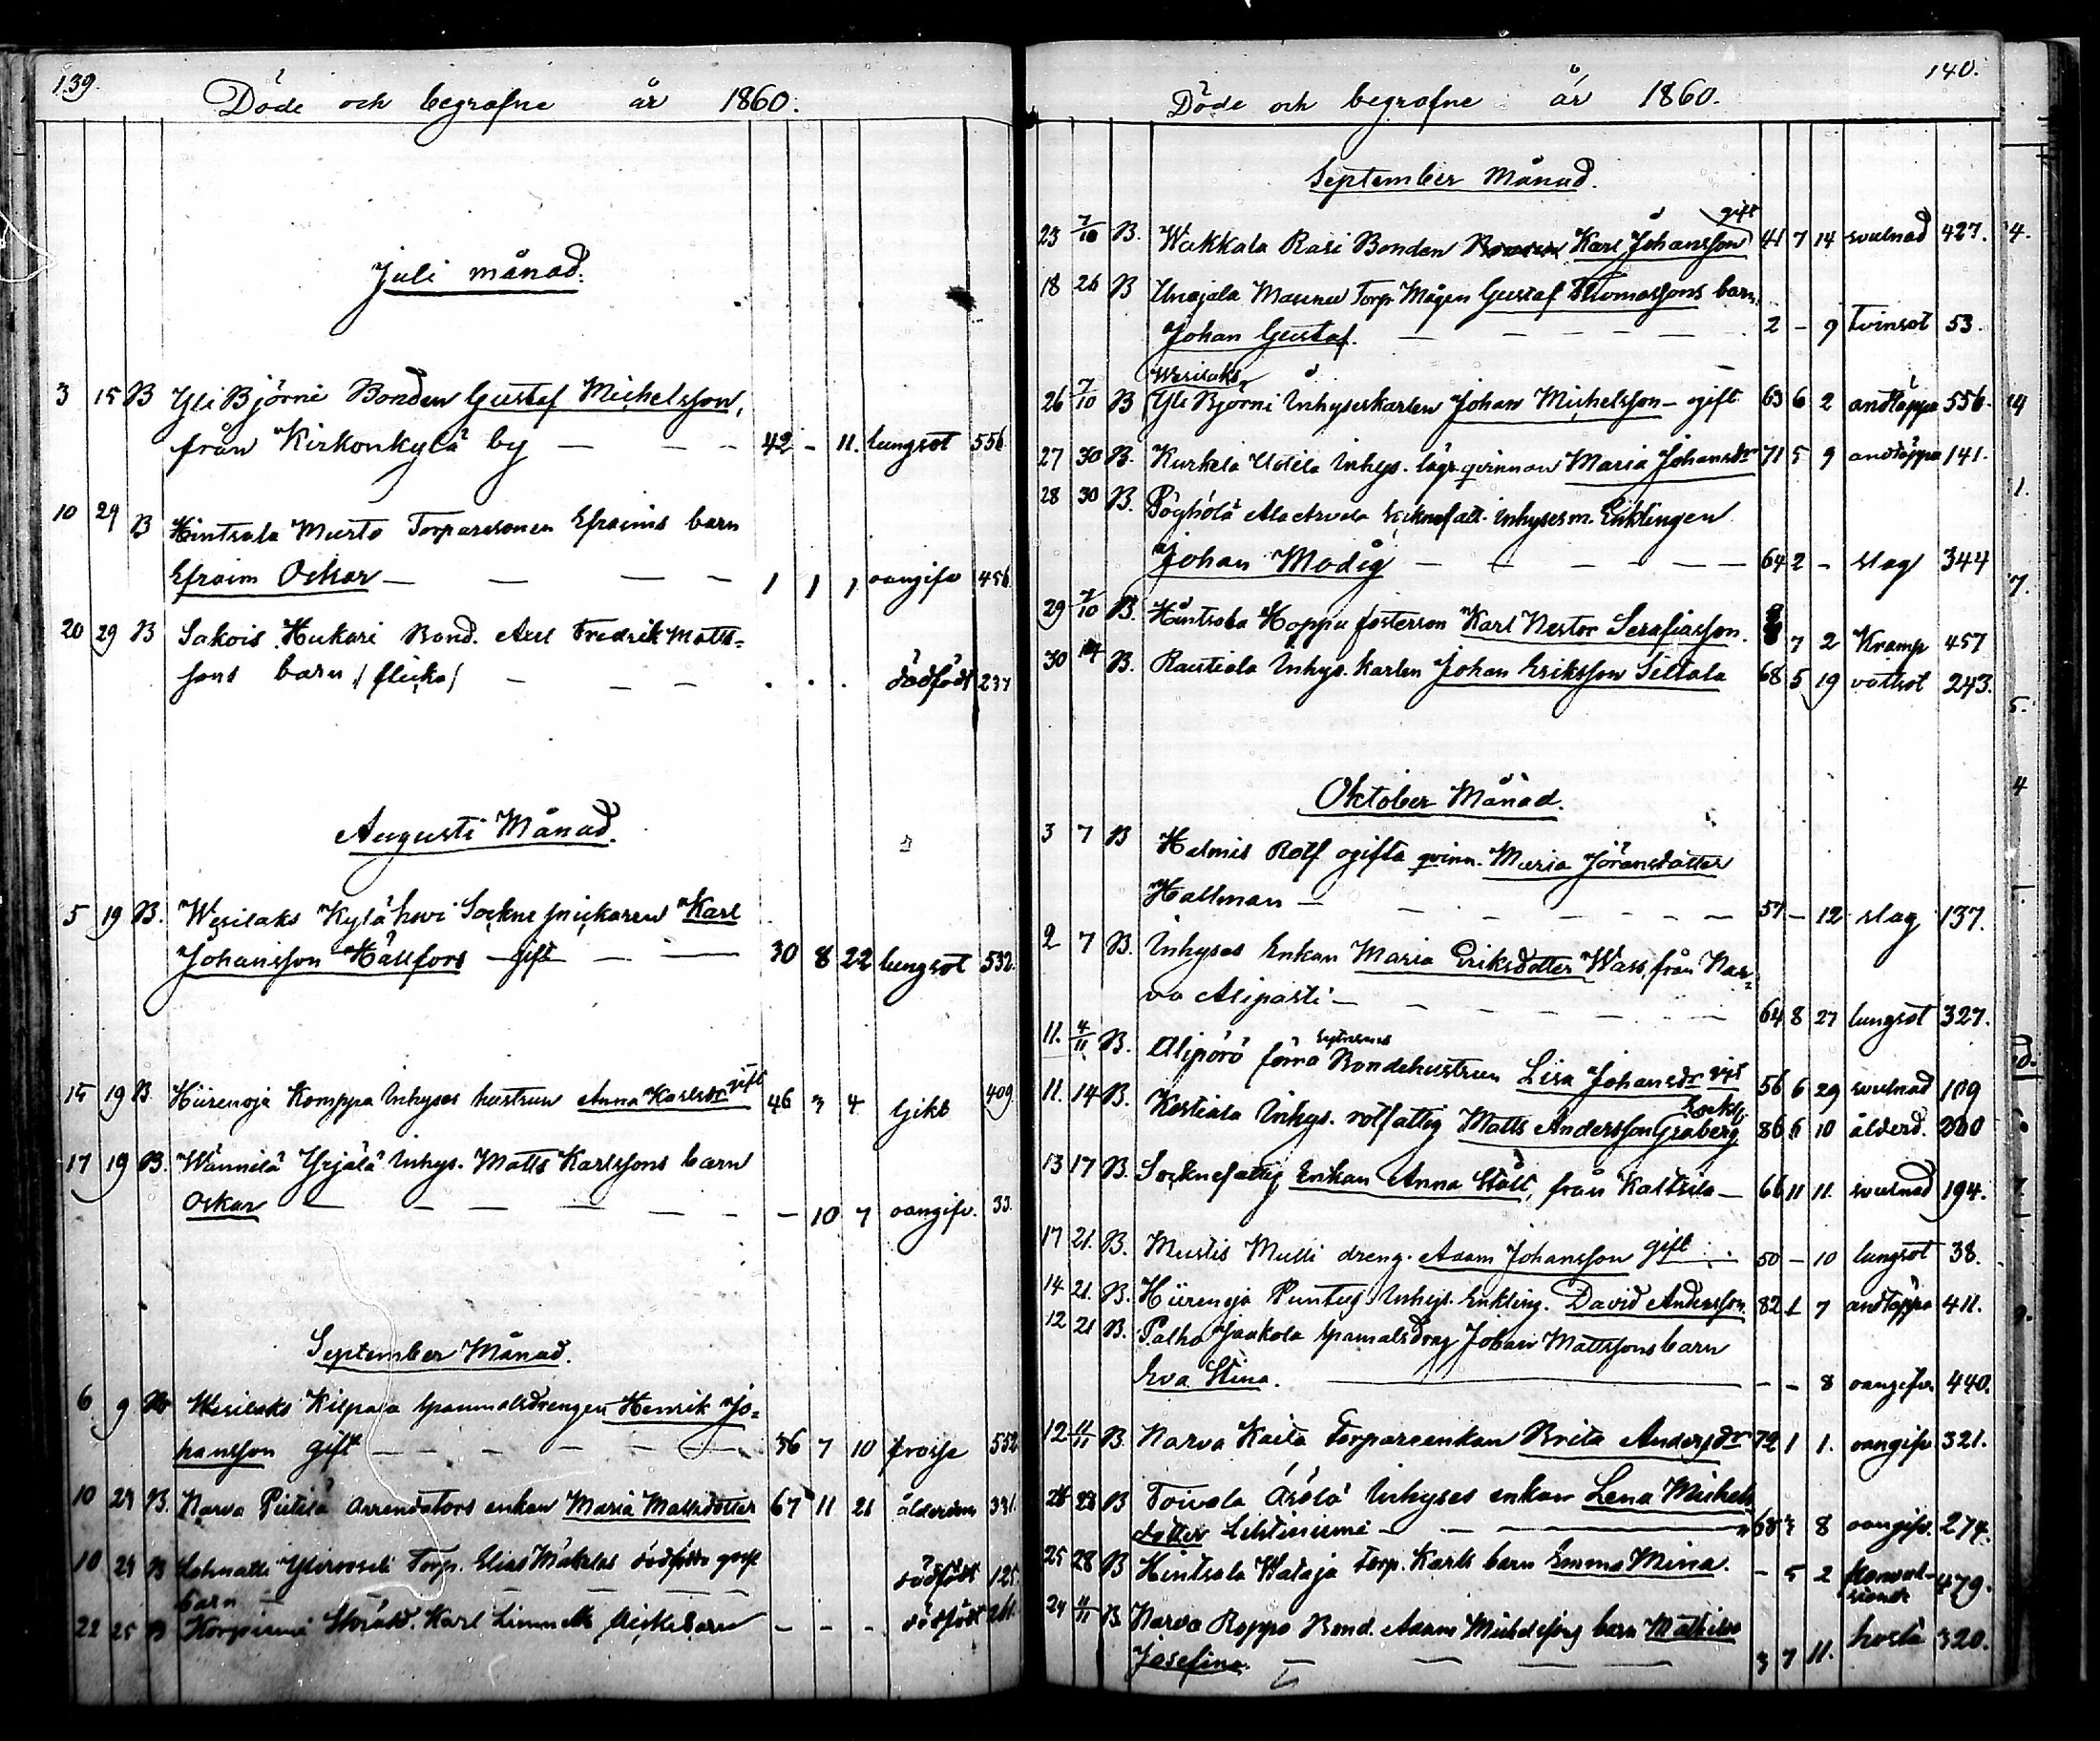 139.
Döde och begrafne år 1860.
Juli månad.
3 15 B Yli Björni Bonden Gustaf Michelsson,
från Kirkonkylä by — — — 42 - 11. lungsot 556
10 29 B Hintsala Murto Torparesonen Efraims barn
Efraim Oskar — — — — 1 1 1 oangifv 456
20 29 B Sakois Hukari Bond. Axel Fredrik Matts-
sons barn /flicka/ — — — . . . dödfödt 237
Augusti Månad.
5 19 B. Wesilaks Kylähovi Sockne snickaren Karl
Johansson Hällfors - gift — — 30 8 22 lungsot 532.
15 19 B. Hiirenoja Komppa Inhyses hustrun Anna Karlsdr gift 46 3 4 Gikt 409
17 19 B. Wännilä Yrjälä Inhys. Matts Karlssons barn
Oskar — — — — — - 10 7 oangifv. 33.
September Månad.
6 9 B Wesilaks Kilpala Spanmålsdrengen Henrik Jo-
hansson gift — — — — 36 7 10 frossa 532
10 23 B. Narva Pietilä Arrendators enkan Maria Mattsdotter 67 11 21 ålderdom 331.
10 23 B Yliroosili Torp. Elias Mäkelä dödfödda gosse
barn — — — — dödfödt 125.
22 25 B Korpiniemi Karl flickebarn - - - dödfödt
140.
Döde och begrafne år 1860.
September Månad.
23 7/10 B. Wakkala Rasi Bonden Karl Johansson gift 41 7 14 svulnad 427.
18 26 B Unajala Maunu Torp. Mågen Gustaf Thomassons barn
Johan Gustaf. — — — — 2 - 9 Tvinsot 53.
Wesilaks
26 7/10 B Yli Bjorni Inhyseskarlen Johan Michelsson - gift 63 6 2 andtäppa 556.
27 30 B. Kurkela Utela Inhys. lägr.qvinnan Maria Johansdr 71 5 9 andtäppa 141.
28 30 B. Pöyhölä Ala Arvela Socknefatt. Inhysesm. Enklingen
Johan Modig — — — — — 64 2 - slag 344
29 7/10 B. Hintsala Hoppu fosterson Karl Nestor Serafiasson. 8 7 2 Kramp 457
30 14 B. Rautiala Inhys. karlen Johan Eriksson Siltala 68 5 19 vattsot 243.
Oktober Månad.
3 7 B Halmis Rolf ogifta qvinn. Maria Jöransdotter
Hallman — — — — — 57 - 12 slag 137.
2 7 B. Inhyses Enkan Maria Eriksdotter Wass, från Nar-
va Alipasti — — — — — 64 8 27 lungsot 327.
11. 4/11 B. Alipörö förra Bondehustrun Lisa Johansdr 56 6 29 svulnad 109
11. 14 B. Kostiala Inhys. rotfattig Matts Andersson Graberg Enkl. 86 6 10 ålderd. 200
13 17 B. Socknefattig Enkan Anna Ståll, från Kaltsila — 66 11 11. svulnad 194.
17 21. B. Mustis Mulli dreng. Adam Johansson gift 50 - 10 lungsot 38.
14 21. B. Hiirenoja Puntus Inhys. Enkling. David Andersson. 82 1 7 andtäppa 411.
12 21 B. Palho Jaakola Spanmålsdreng Johan Mattssons barn
Eva Stina. — - - 8 oangifv. 440.
12 4/11 B Narva Kaila Torpareenkan Brita Andersdr 72 1 1. oangifv. 321.
28 B Toivola Inhyses enkan Lena Michels
dotter Lihtiniemi — — — 8 oangifv. 274.
25 28 B Hintsala Wataja Torp. Karls barn Emma Mina. - 5 2 479.
24 4/11 B Narva Roppo Bond. Adam Michelssons barn Mathilda
Josefina. — — — — 3 7 11. hosta 320.